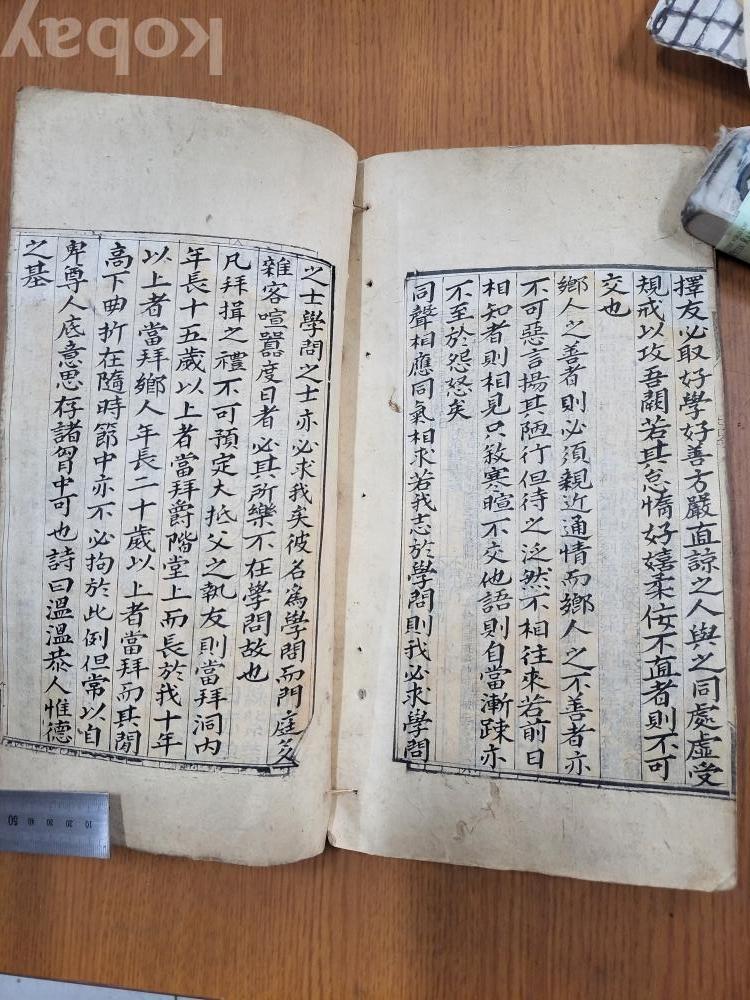 kobay
擇友必取好學好善方嚴直諒之人與之同處虛受
規戒以攻吾闕若其怠惰好嬉柔佞不直者則不可
交也
鄕人之善者則必須親近通情而鄕人之不善者亦
不可惡言揚其陋行但待之泛然不相往來若前日
相知者則相見只敍寒暄不交他語則自當漸踈亦
不至於怨怒矣
同聲相應同氣相求若我志於學問則我必求學問
之士學問之士亦必求我矣彼名爲學問而門庭多
雜客喧囂度日者必其所樂不在學問故也
凡拜揖之禮不可預定大抵父之執友則當拜洞內
年長十五歲以上者當拜爵階堂上而長於我十年
以上者當拜鄕人年長二十歲以上者當拜而其間
高下曲折在隨時節中亦不必拘於此例但常以自
卑尊人底意思存諸胷中可也詩曰溫溫恭人惟德
之基
10 20 30 40 50